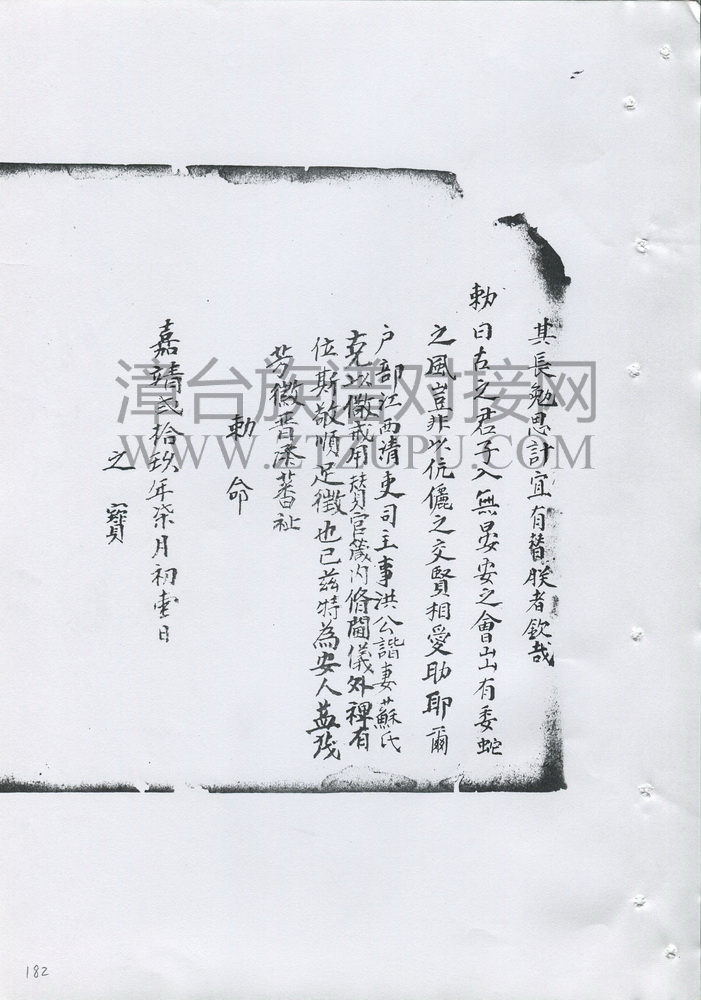 其長勉思計宜有替朕者欽哉
勅曰古之君子入無晏安之會出有委蛇
之風豈非以伉儷之交賢相愛助耶爾
户部江西清吏司主事洪公諧妻蘇氏
克以儆戒用賛官箴内脩閫儀外裨有
位斯敬順足徵也已兹特為安人益茂
芳徽晋承蕃祉
勅命
嘉靖弍拾玖年柒月初壹日
之寶
漳台族谱对接网
WWW.ZTZUPU.COM
182